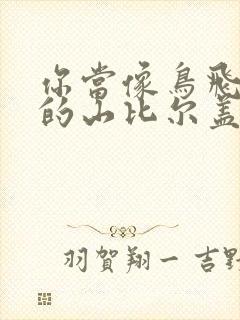 你當像鳥飛
的山比尔盖
羽賀翔一 吉野